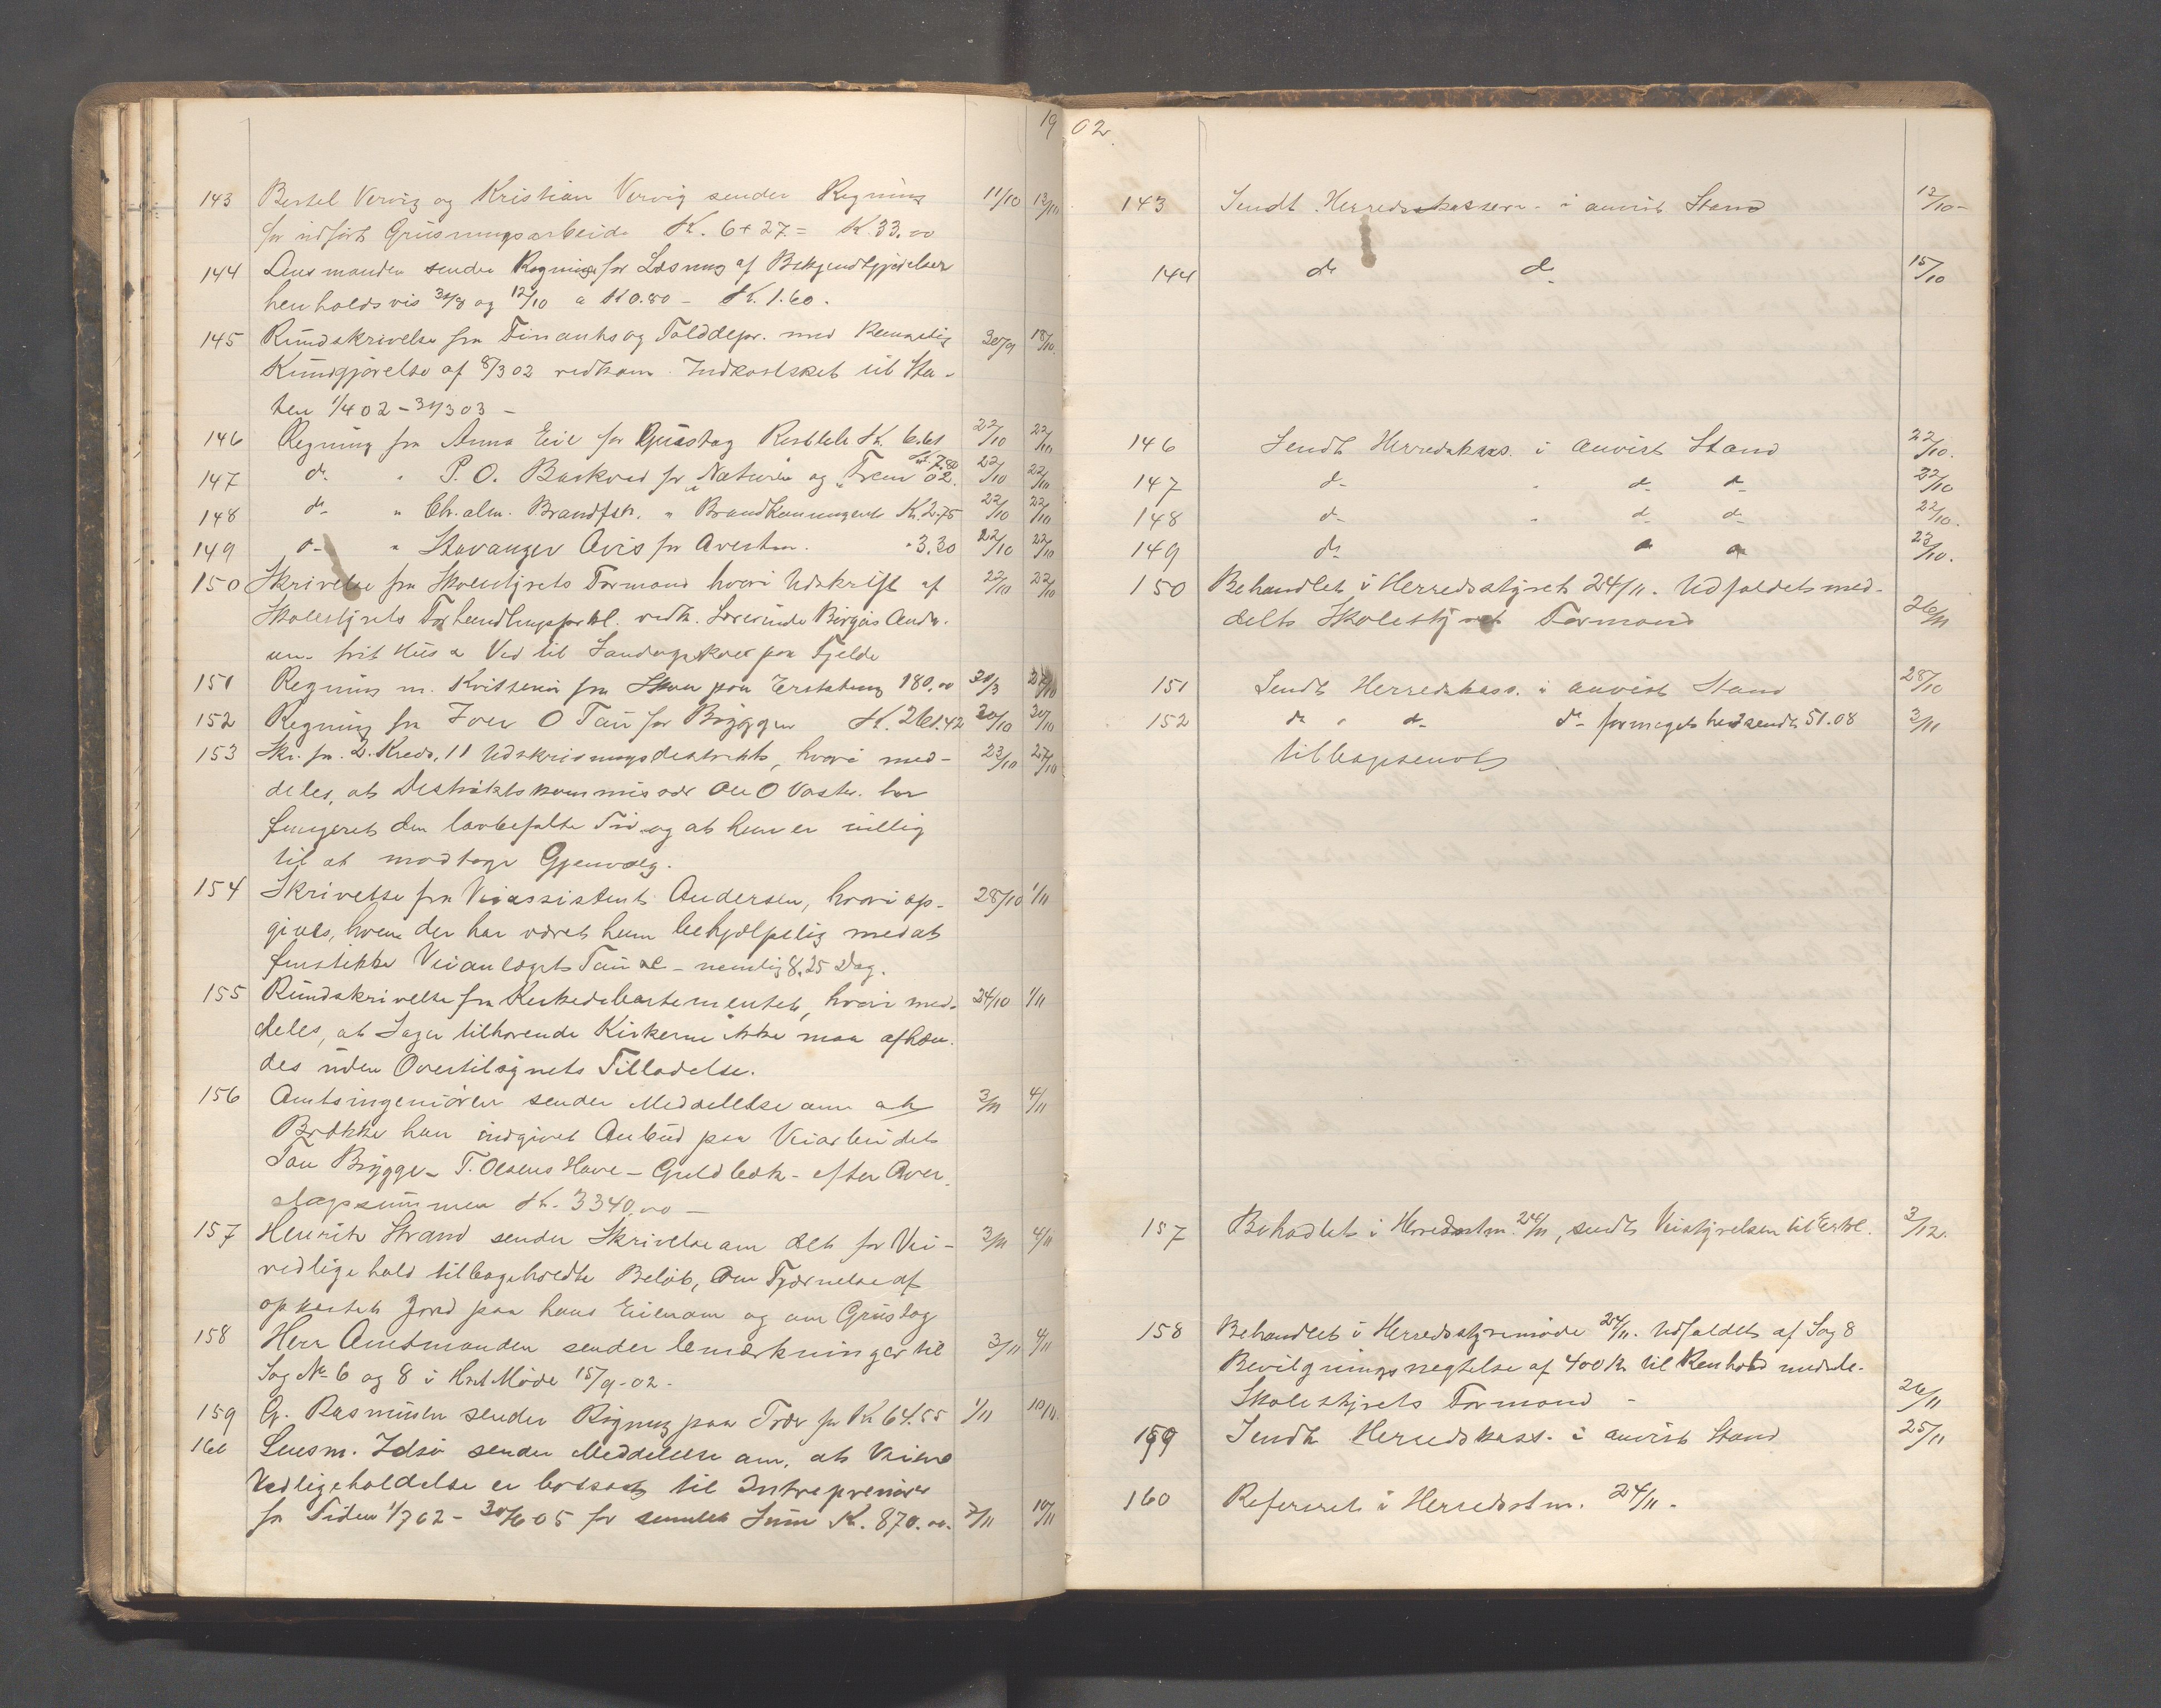 19 02.
143 Bertel Vervig og Kristian Vervig sender Regning 11/10 12/10
for udført Grusningsarbeide K. 6 + 27 = K 33.00
144 Lensmanden sender Regning for Læsning af Bekjendtgjørelser
henholdsvis 31/8 og 12/10 a K 0.80 - K. 1.60.
145 Rundskrivelse fra Finants og Tolddepr. med 30/9 18/10.
Kundgjørelse af 8/3 02 vedkom. Indkostsket til Sta-
ten 1/4 02 - 31/3 03 -
146 Regning fra Anna Eie for Grustag Restbeløb K. 6.61 22/10 22/10
147 do. " P. O. Barkved for "Naturen" og "Frem" 02. K. 7.80 22/10 22/10
148 do " Chr. alm. Brandfsk. " Brandkontingent K. 2.75 22/10 22/10
149 do " Stavanger Avis for Avert. " 3.30 22/10 22/10
150 Skrivelse fra Skolestyrets Formand hvori Udskrift af 22/10 22/10
Skolestyrets Forhandlingsprotkl. vedk. Lærerinde Birgit Ands.
frit Hus & Ved til paa Fjelde
151 Regning m. Kvittering fra paa Erstatning 180.00 30/3 27/10
152 Regning fra Iver O Tau for Bryggen K. 261.42 30/10 30/10
153 Skr. fra 2. Kreds. 11 Udskrivningsdestrikt, hvori med- 23/10 27/10
deles, at Destriktskommissær Ole O Vaster. har
fungeret den lovbefalte Tid og at han er villig
til at modtage Gjenvalg.
154 Skrivelse fra Veiassistent Andersen, hvori op- 28/10 1/11
gives, hvem der har været ham behjælpelig med at
finstikke Veianlæget Tau - nemlig 8.25 Dag.
155 Rundskrivelse fra Kirkedebartementet, hvori med- 24/10 1/11
deles, at Sager tilhørende Kirkerne ikke maa afhæn-
des uden Overtilsynets Tilladelse.
156 Amtsingeniøren sender Meddelelse om at 3/11 4/11
Brække han indgivet Anbud paa Veiarbeidet
Tau Brygge - T. Olsens Have - Guldbæk - efter Over-
slagssummen K. 3340.00 -
157 Henrik Strand sender Skrivelse om det for Vei- 3/11 4/11
vedligehold tilbageholdte Beløb, om Fjernelse af
opkastet Jord paa hans Eiendom og om Grustag
158 Herr Amtmanden sender bemærkninger til 3/11 4/11
Sag No 6 og 8 i Hrst. Møde 15/9-02.
159 G. Rasmusen sender Regning paa Træer for K 64.55 1/11 10/11.
160 Lensm. Idsø sender Meddelelse om, at Veiens
Vedligeholdelse er bortsat til Intreprenører
for Tiden 1/7 02 - 30/6 05 for samlet Sum K. 870.00. 7/11 10/11
143 Sendt Herredskassere - i anvist Stand 13/10-
144 do do 15/10
146 Sendt Herredskass. i anvist Stand 22/10.
147 do " do do 22/10
148 do " do do 22/10.
149 do " " 23/10.
150 Behandlet i Herredsstyret 24/11. Udfaldet med-
delt Skolestyrets Formand 26/11
151 Sendt Herredskass. i anvist Stand 28/10
152 do " do do formeget hidsendt 51.08 3/11
tilbagesendt
157 Behadlet i Herredsstm. 24/11, sendt Veistyrelsen til Erkl. 3/12.
158 Behandlet i Herredsstyremøde 24/11. Udfaldet af Sag 8
Bevilgningsnegtelse af 400 Kr til Renhold meddelt
Skolestyrets Formand - 26/11
159 Sendt Herredskass. i anvist Stand 25/11
160 Refereret i Herredsstm. 24/11.